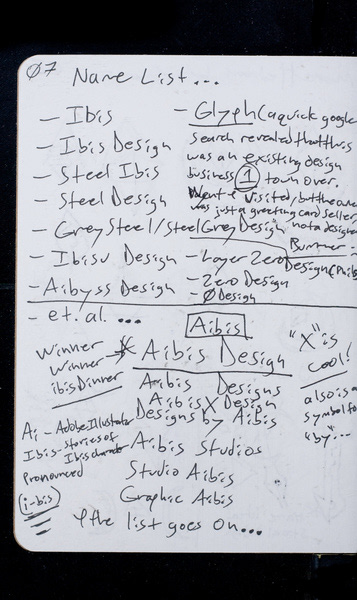 Ø7
Name List...
- Ibis
- Ibis Design
- Steel Ibis
- Steel Design
- Grey Steel/Steel Grey Design
- Ibisu Design
- Aibyss Design
- et. al. ...
- Glyph (a quick google
search revealed that this
was an existing design
business 1 town over.
Went & visited, but the
was just a greeting card seller,
not a designer
Bummer -
- Layer Zero
Design
- Zero Design
- Ø Design
Aibis
Winner
Winner
ibis Dinner
Aibis Design
Aibis Designs
Aibis X Design
Designs by Aibis
Aibis Studios
Studio Aibis
Graphic Aibis
& the list goes on...
"X" is
cool!
also is a
symbol fo
"by"...
Ai - Adobe Illustrator
Ibis - stories of
Ibis
pronounced
i-bis